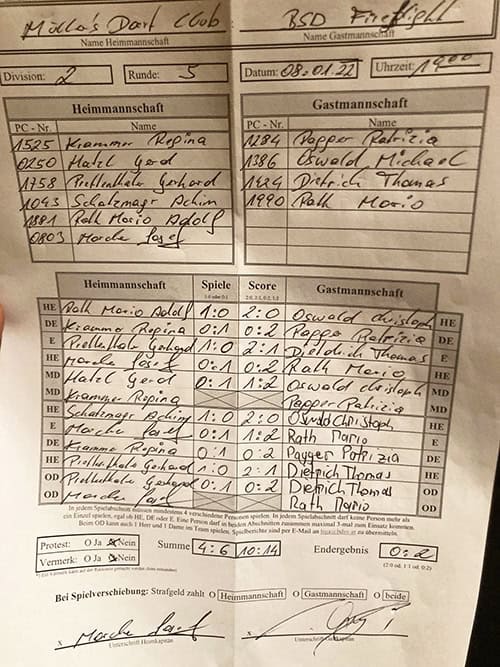 Mülla's Dart Club BSD Firefight
Name Heimmannschaft Name Gastmannschaft
Division: 2 Runde: 5 Datum: 08.01.22 Uhrzeit: 19⁰⁰
Heimmannschaft Gastmannschaft
PC - Nr. Name PC - Nr. Name
1525 Krammer Regina 1284 Papper Patrizia
0250 Hatzl Gerd 1386 Oswald Michael
1758 Piehlenthaler Gerhard Dietrich Thomas
1043 Schatzmayr Achim 1990 Rath Mario
1881 Rath Mario Adolf
0803 Morche Josef
Heimmannschaft Spiele Score Gastmannschaft
1:0 oder 0:1 2:0, 2:1, 0:2, 1:2
HE Rath Mario Adolf 1:0 2:0 Oswald Christoph HE
DE Krammer Regina 0:1 0:2 Papper Patrizia DE
E Piehlenthaler Gerhard 1:0 2:1 Dietrich Thomas E
HE Morche Josef 0:1 0:2 Rath Mario HE
MD Hatzl Gerd 0:1 1:2 Oswald Christoph MD
MD Krammer Regina Papper Patrizia MD
HE Schatzmayr Achim 1:0 2:0 Oswald Christoph HE
E Morche Josef 0:1 1:2 Rath Mario E
DE Krammer Regina 0:1 0:2 Papper Patrizia DE
HE Piehlenthaler Gerhard 1:0 2:1 Dietrich Thomas HE
OD Piehlenthaler Gerhard 0:1 0:2 Dietrich Thomas OD
OD Morche Josef Rath Mario OD
In jedem Spielabschnitt müssen mindestens 4 verschiedene Personen spielen. In jedem Spielabschnitt darf keine Person mehr als
ein Einzel spielen, egal ob HE, DE oder E. Eine Person darf in beiden Abschnitten zusammen maximal 3-mal zum Einsatz kommen.
Beim OD kann auch 1 Herr und 1 Dame im Team spielen. Spielberichte sind per E-Mail an zu übermitteln.
Protest: O Ja O Nein Summe 4:6 10:14 Endergebnis 0:2
Vermerk: O Ja O Nein (2:0 od. 1:1 od. 0:2)
Bei Spielverschiebung: Strafgeld zahlt O Heimmannschaft O Gastmannschaft O beide
x Morche Josef x
Unterschrift Heimkapitän Unterschrift Gastkapitän